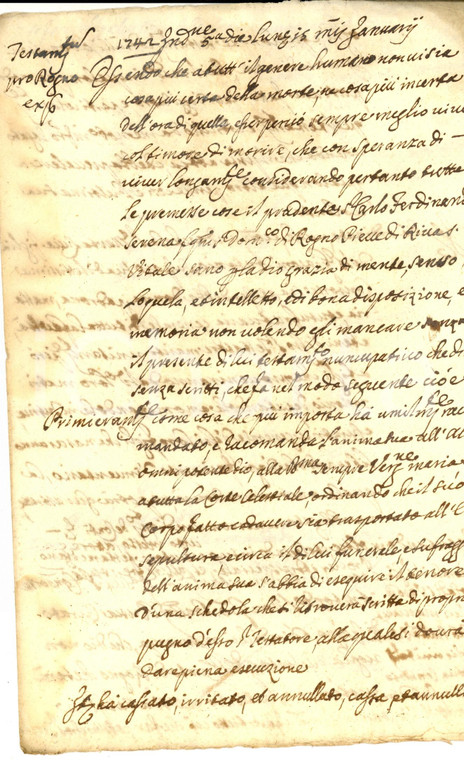 Testam.tu
pro Rogno
ex.o
1742 Ind.ne 5 a dia Lunę 15 mēs January
Essendo che a tutt' il genere humano non vi sia
cosa più certa della morte, ne cosa più incerta
dell'ora di quella, che perciò sempre meglio vive
col timore di morire, che con speranza di
viver longam.te considerando pertanto tutte
le premesse cose il prudente S.r Carlo Ferdinand
Serena q. Dom.co di Rogno Pieve di Riva S.
Vitale sano p la dio grazia di mente, senso,
loquela, et intelletto, e di bona disposizione, e
memoria non volendo egli mancare senza
il presente di lui testam.to nuncupativo che di
senza scritti, che fa nel modo seguente cioè
Primieram.te come cosa che più importa hà umilm.te rac
mandato, e racomanda l'anima sua all' Al
omnipotente dio, alla B.ma sempre Verg.ne maria
a tutta la Corte Celestiale, ordinando che il suo
Corpo fatto cadavere sia trasportato all'
sepultura, e circa il di lui funerale e suffrag
dell'anima sua s'abbia di eseguire il tenore
d'una schedola che si litroverà scritta di propr
pugno d'esso S.r Testatore, alla quale si dourà
dare piena esecuzione
It. hà cassato, irritato, et annullato, cassa, et annull